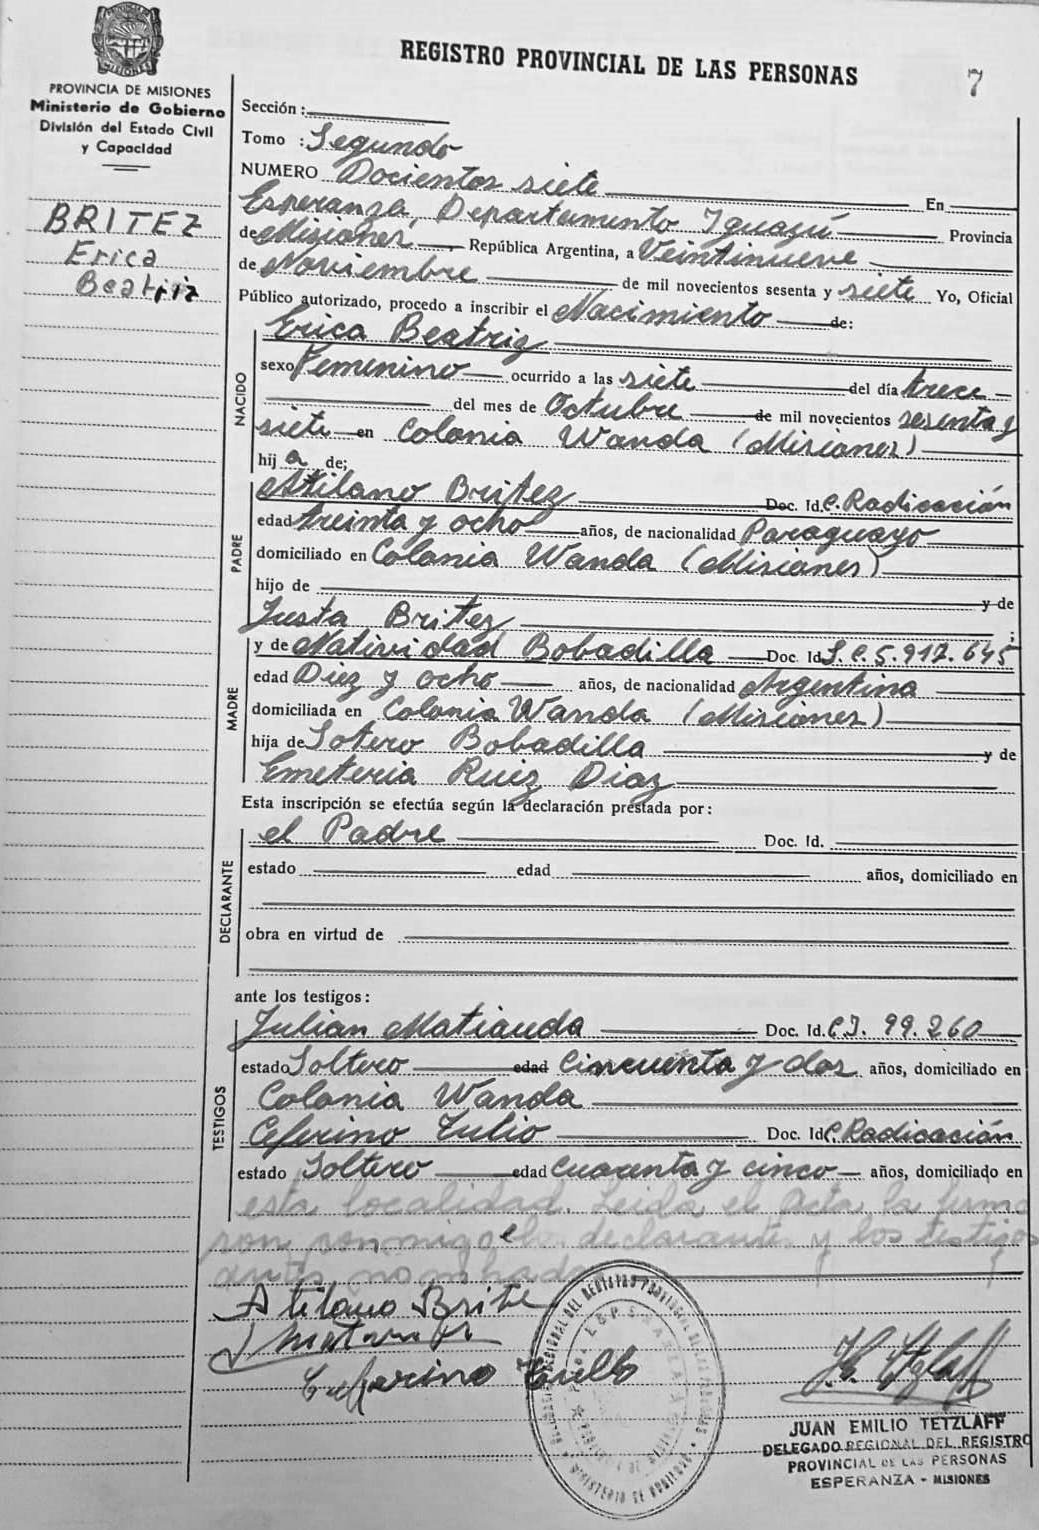 REGISTRO PROVINCIAL DE LAS PERSONAS
7
PROVINCIA DE MISIONES
Ministerio de Gobierno
División del Estado Civil
y Capacidad
BRITEZ
Erica
Beatriz
Sección :
Tomo : Segundo
NUMERO Docientos siete En
Esperanza, Departamento Iguazú Provincia
de Misiones República Argentina, a Veintinueve
de Noviembre de mil novecientos sesenta y siete Yo, Oficial
Público autorizado, procedo a inscribir el Nacimiento de:
NACIDO
Erica Beatriz
sexo Femenino ocurrido a las siete del día trece
del mes de Octubre de mil novecientos sesenta y
siete en Colonia Wanda (Misiones)
hij a de;
PADRE
Atilano Britez Doc. Id. C. Radicación
edad treinta y ocho años, de nacionalidad Paraguayo
domiciliado en Colonia Wanda (Misiones)
hijo de y de
Justa Britez ;
MADRE
y de Natividad Bobadilla Doc. Id L.C. 5.912.645
edad Diez y ocho años, de nacionalidad Argentina
domiciliada en Colonia Wanda (Misiones)
hija de Sotero Bobadilla y de
Emeteria Ruiz Diaz
Esta inscripción se efectúa según la declaración prestada por:
DECLARANTE
el Padre Doc. Id.
estado edad años, domiciliado en
obra en virtud de
ante los testigos:
TESTIGOS
Julian Matiauda Doc. Id. C.I. 99.260
estado Soltero edad Cincuenta y dos años, domiciliado en
Colonia Wanda
Ceferino Tulio Doc. Id C. Radicación
estado Soltero edad Cuarenta y cinco años, domiciliado en
esta localidad. Leida el acta, la firma
ron conmigo el declarante y los testigos
antes nombrados
Atilano Brite
Ceferino
JUAN EMILIO TETZLAFF
DELEGADO REGIONAL DEL REGISTRO
PROVINCIAL DE LAS PERSONAS
ESPERANZA - MISIONES